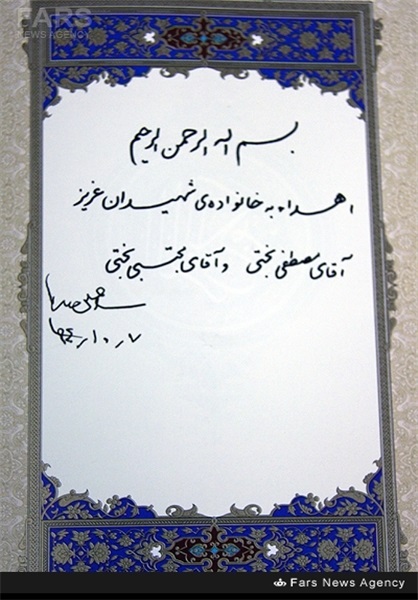 FARS
NEWS AGENCY
بسم الله الرحمن الرحیم
اهداء به خانواده‌ی شهیدان عزیز
آقای مصطفی بختی و آقای مجتبی بختی
Fars News Agency